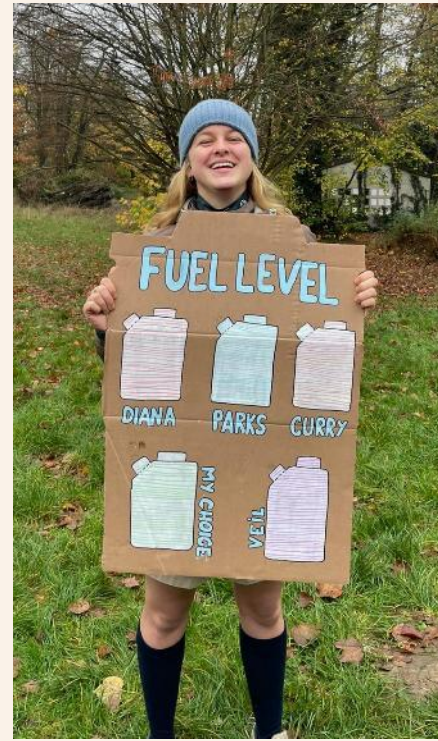 FUEL LEVEL
DIANA PARKS CURRY
MY CHOICE
VEiL